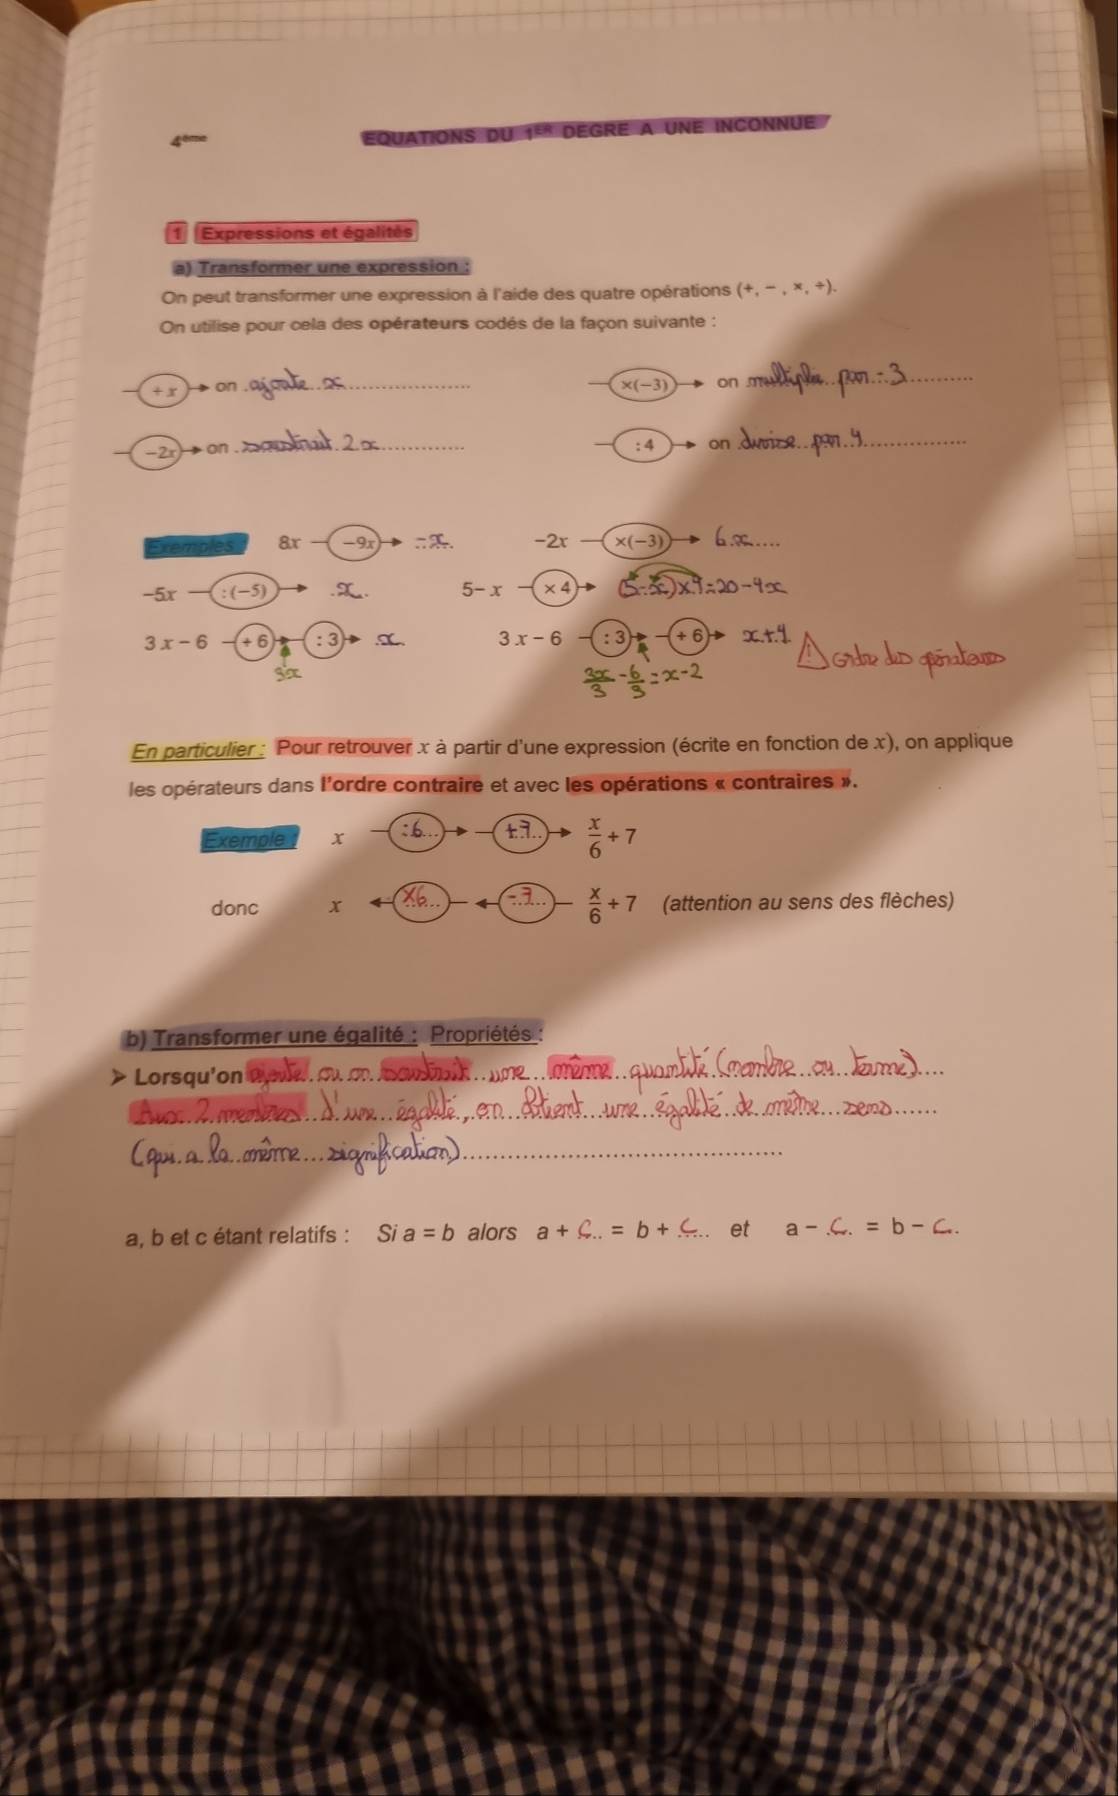 4ème EQUATIONS DU 1ER DEGRE A UNE INCONNUE
1 Expressions et égalités
a) Transformer une expression :
On peut transformer une expression à l'aide des quatre opérations (+, − , ×, ÷).
On utilise pour cela des opérateurs codés de la façon suivante :
+ x on ajoute x ×(−3) on multiplie par -3
−2x on soustrait 2x : 4 on divise par 4
Exemples : 8x −9x -x −2x ×(−3) 6x
−5x : (−5) x 5− x × 4 (5-x)×4=20-4x
3 x − 6 + 6 : 3 x 3 x − 6 : 3 + 6 x+4 ! ordre des opérateurs
3x 3x/3 - 6/3 = x-2
En particulier : Pour retrouver x à partir d'une expression (écrite en fonction de x), on applique
les opérateurs dans l'ordre contraire et avec les opérations « contraires ».
Exemple : x :6 +7 x/6 + 7
donc x ×6 -7 x/6 + 7 (attention au sens des flèches)
b) Transformer une égalité : Propriétés :
➢ Lorsqu'on ajoute ou on soustrait une même quantité (nombre ou terme)
Aux 2 membres d'une égalité, on obtient une égalité de même sens
(qui a la même signification)
a, b et c étant relatifs : Si a = b alors a + c = b + c et a − c = b − c